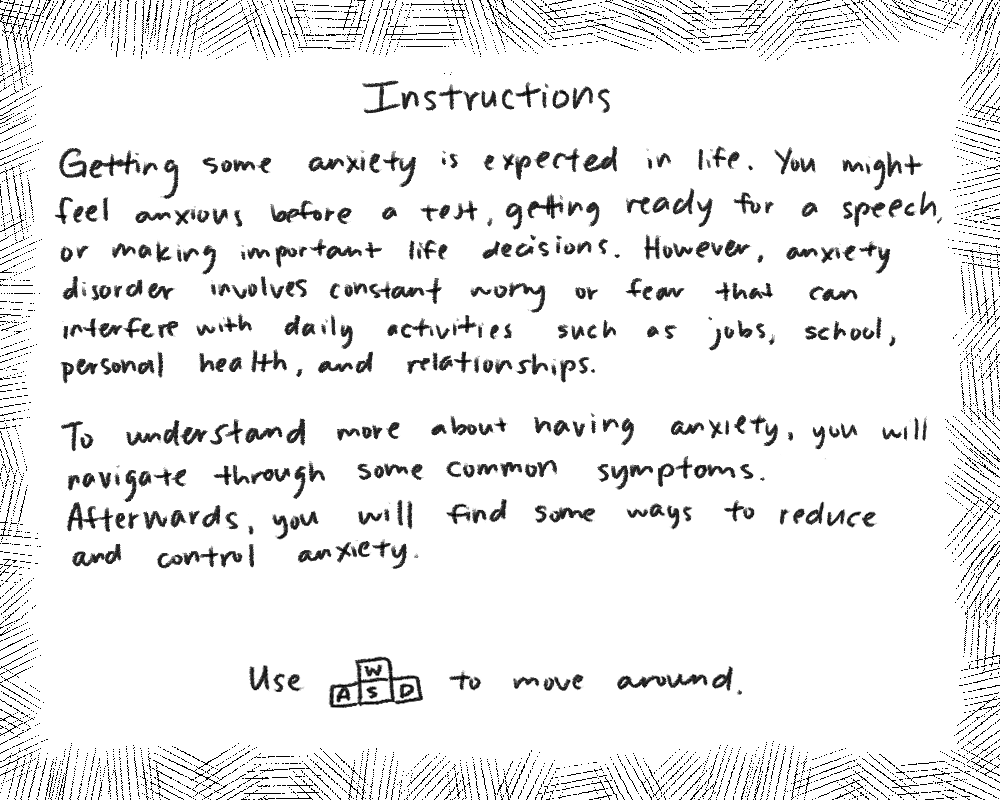 Instructions
Getting some anxiety is expected in life. You might
feel anxious before a test, getting ready for a speech,
or making important life decisions. However, anxiety
disorder involves constant worry or fear that can
interfere with daily activities such as jobs, school,
personal health, and relationships.
To understand more about having anxiety, you will
navigate through some common symptoms.
Afterwards, you will find some ways to reduce
and control anxiety.
W
Use A S D to move around.